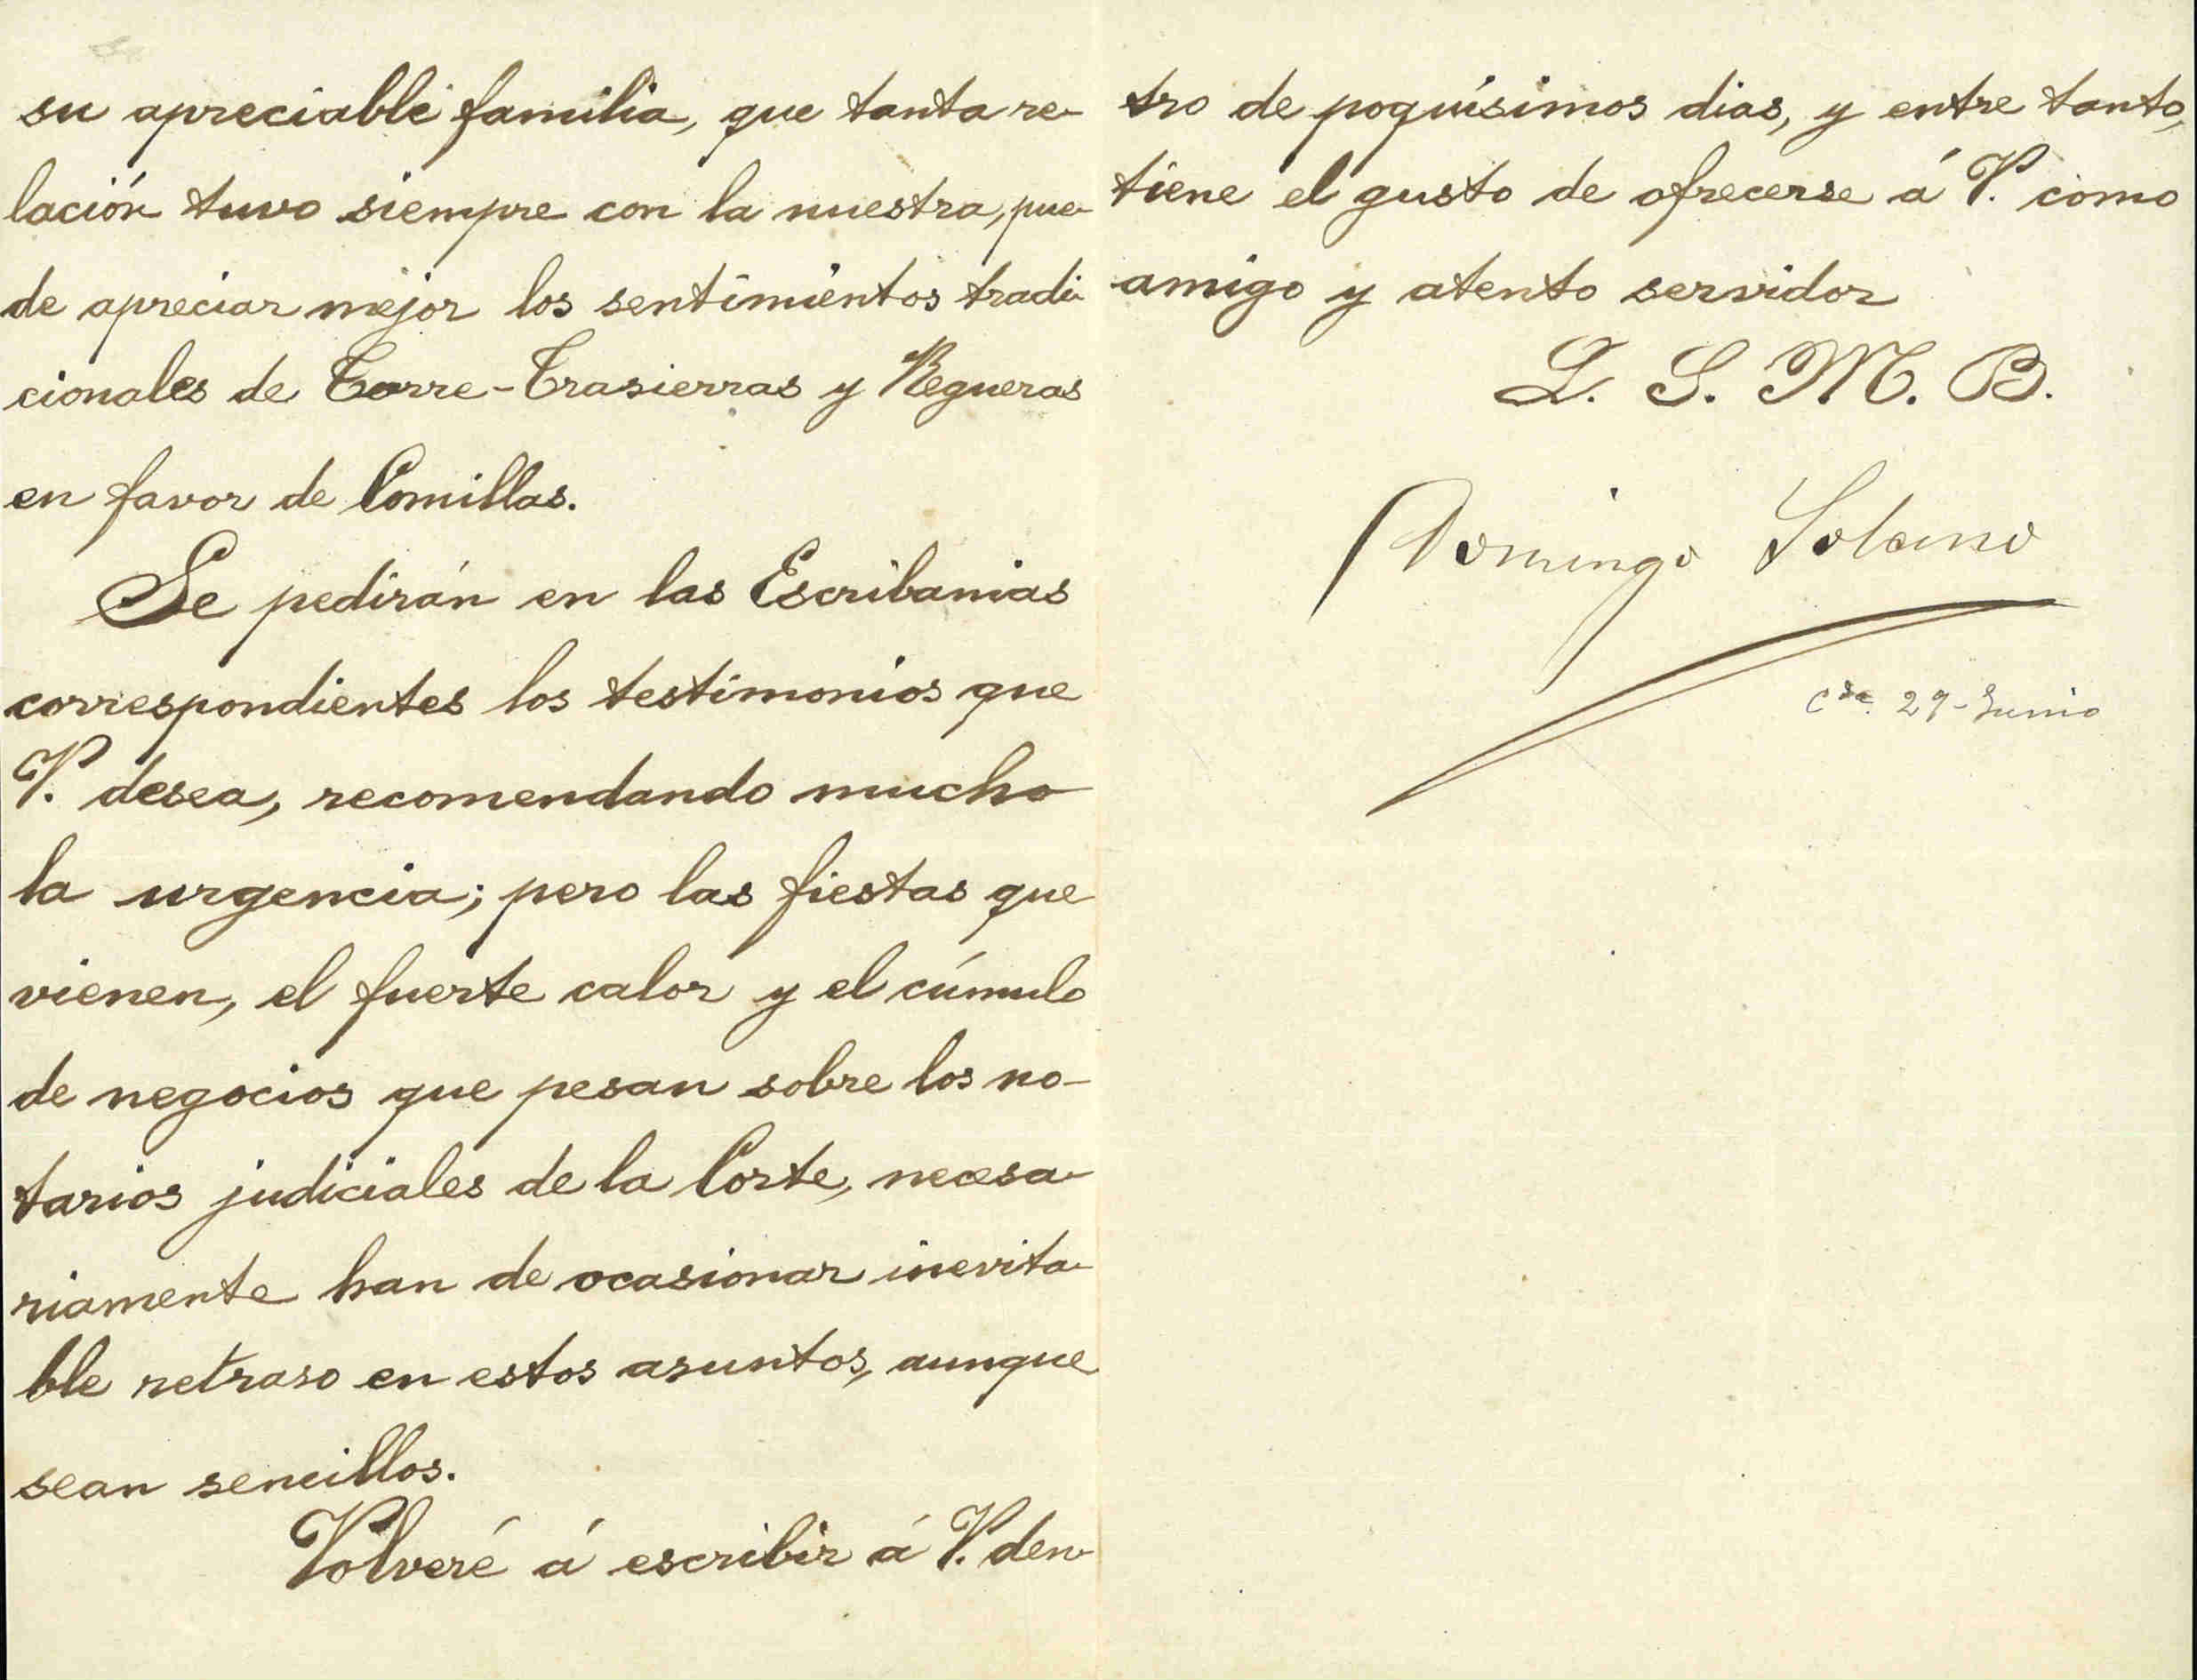 su apreciable familia, que tanta re-
lación tuvo siempre con la nuestra, pue-
de apreciar mejor los sentimientos tradi-
cionales de Torre-Trasierras y Regueras
en favor de Comillas.
Se pedirán en las Escribanias
correspondientes los testimonios que
V. desea, recomendando mucho
la urgencia; pero las fiestas que
vienen, el fuerte calor y el cúmulo
de negocios que pesan sobre los no-
tarios judiciales de la Corte, necesa-
riamente han de ocasionar inevita-
ble retraso en estos asuntos, aunque
sean sencillos.
Volveré á escribir á V. den-
tro de poquísimos dias, y entre tanto,
tiene el gusto de ofrecerse á V. como
amigo y atento servidor
Q. S. M. B.
Domingo Solano
Cda. 29-Junio